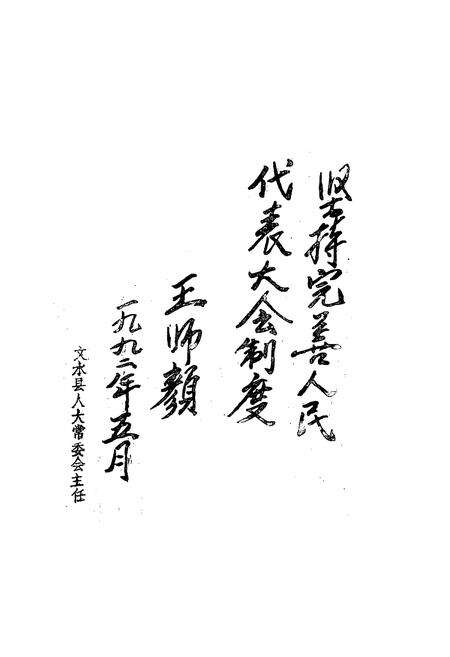 坚持完善人民
代表大会制度
王师颜
一九九二年五月
文水县人大常委会主任